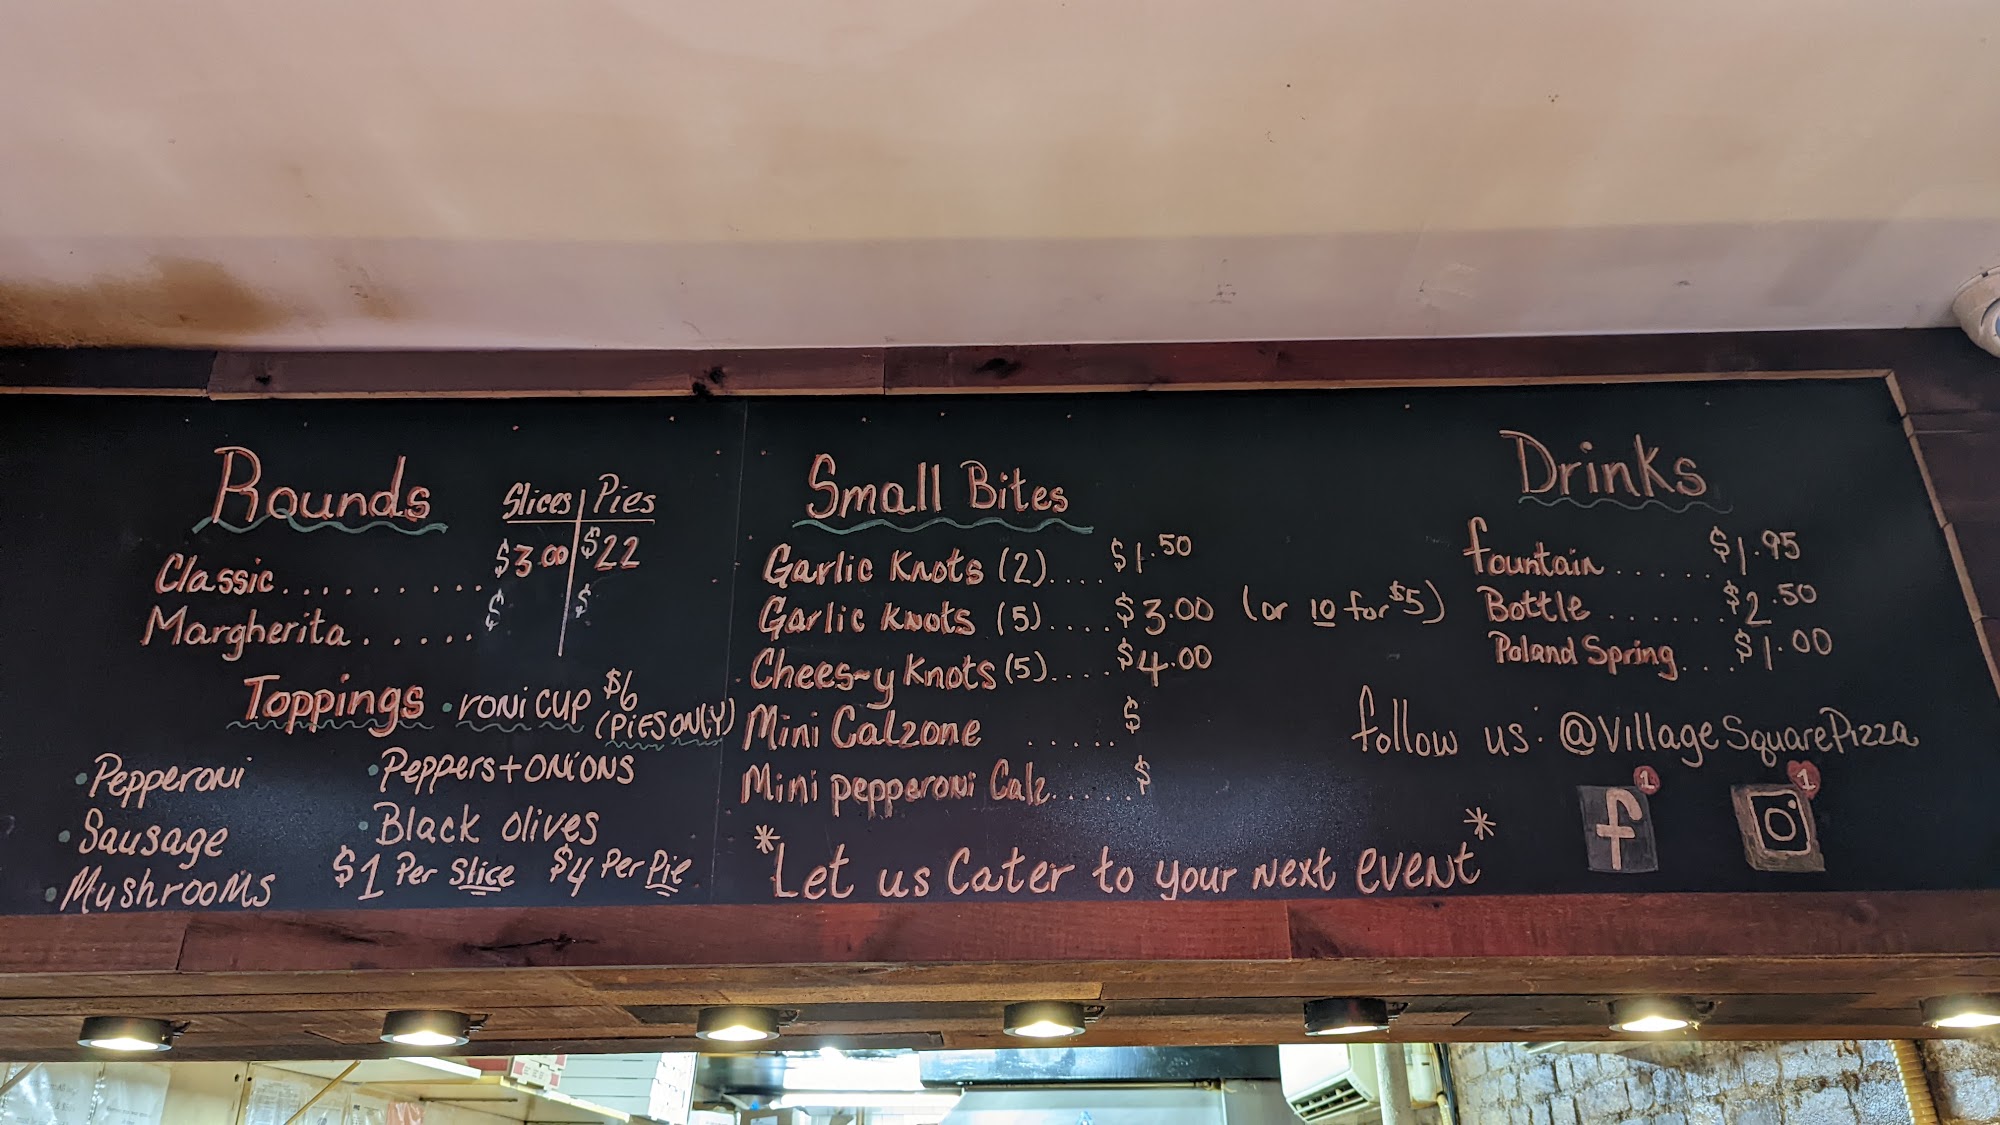 Rounds
Slices Pies
Classic......... $3.00 $22
Margherita...... $ $
Toppings • roni cup $6
(PiES ONLY)
• Pepperoni
• Sausage
• MushrooMs
• Peppers + ONiONS
• Black olives
$1 Per Slice $4 Per Pie
Small Bites
Garlic Knots (2).... $1.50
Garlic Knots (5).... $3.00 (or 10 for $5)
Chees-y Knots (5).... $4.00
Mini Calzone ..... $
Mini pepperoni Calz..... $
*Let us Cater to your Next EVENT*
Drinks
fountain..... $1.95
Bottle...... $2.50
Poland Spring... $1.00
follow us: @VillageSquarePizza
f 1
1